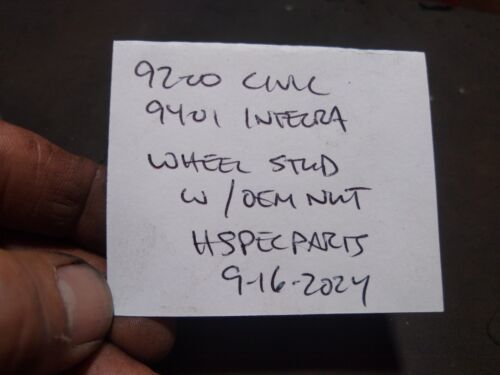 9200 CIVIC
9401 INTEGRA
WHEEL STUD
W/OEM NUT
HSPECPARTS
9-16-2024